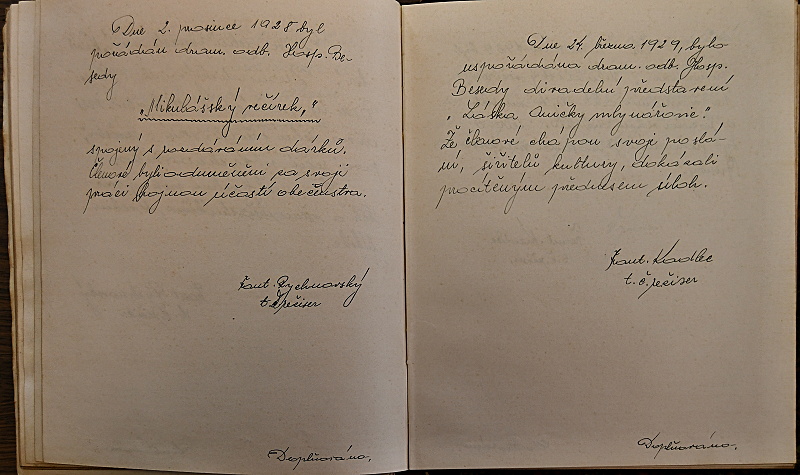 Dne 2. prosince 1928 byl
pořádán dram. odb. Hosp. Be-
sedy
„Mikulášský večírek,"
spojený s rozdáváním dárků.
Členové byli odměněni za svoji
práci hojnou účastí obecenstva.
Fant. Rychnovský
t. č. režiser
Doplňováno.
Dne 24. března 1929, bylo
uspořádáno dram. odb. Hosp.
Besedy divadelní představení
„Láska Aničky mlynářovic".
Že členové chápou svoje poslá-
ní, šiřitelů kultury, dokázali
procítěným přednesem úloh.
Fant. Kadlec
t. č. režiser
Doplňováno.